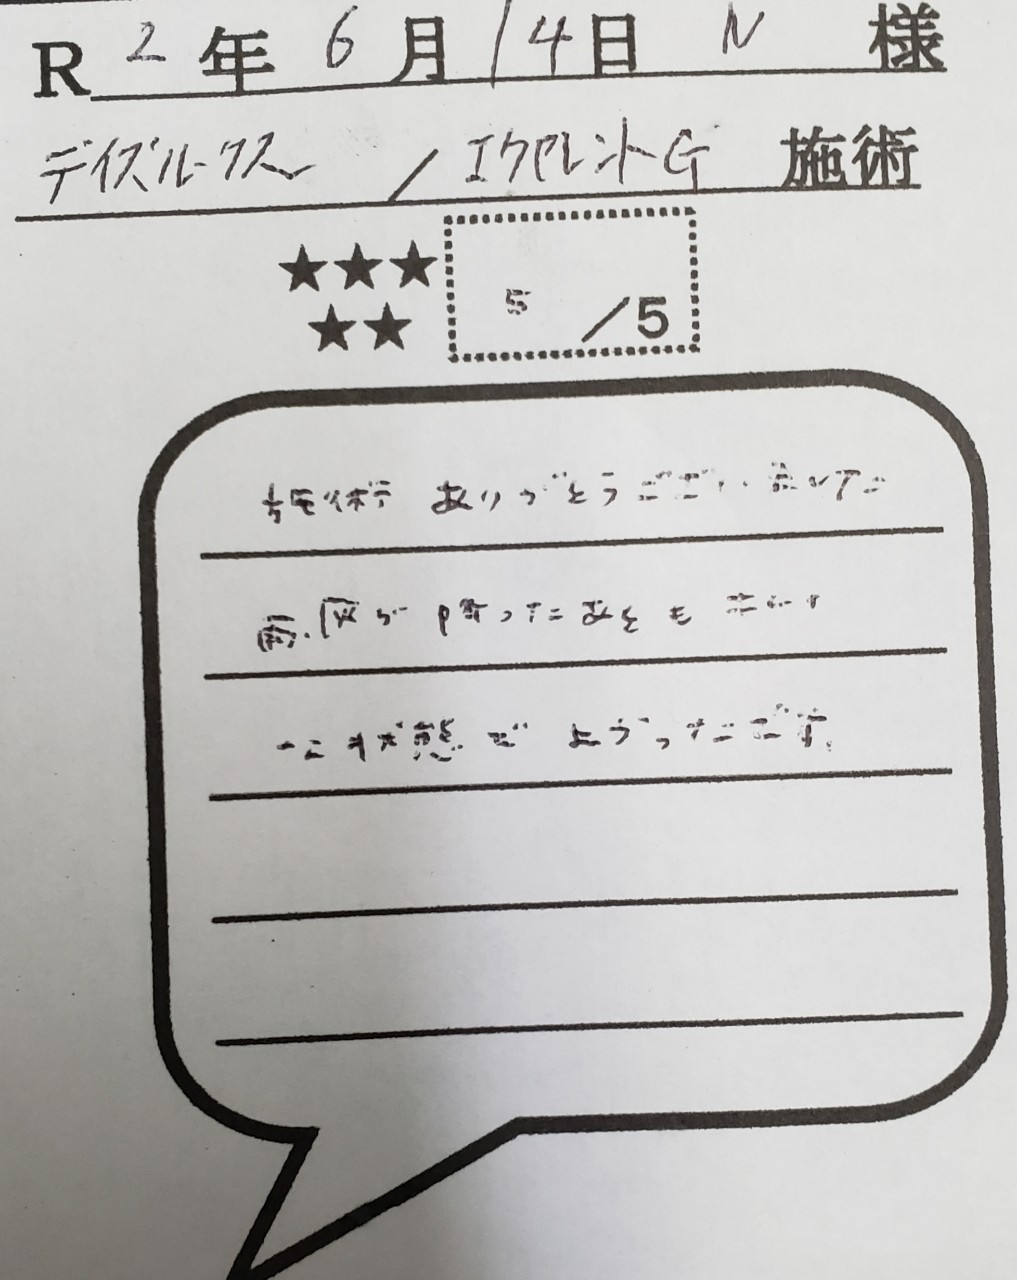 R 2 年 6 月 14 日 N 様
デイズルークス / エクセレントG 施術
★★★
★★
5 /5
施術 ありがとうございました
雨、風が 降ったあとも
な状態で よかったです。